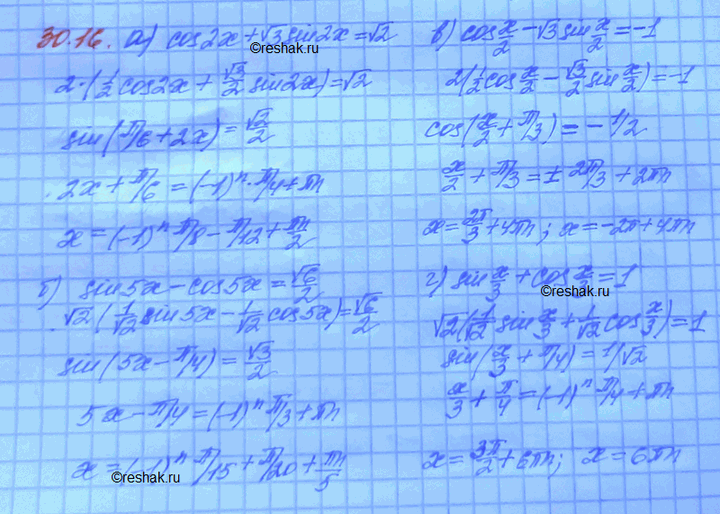 30.16. а) cos2x+√3sin2x=√2
©reshak.ru
2·(1/2 cos2x+√3/2 sin2x)=√2
sin(π/6+2x)=√2/2
2x+π/6=(-1)ⁿ·π/4+πn
x=(-1)ⁿπ/8-π/12+πn/2
б) sin5x-cos5x=√6/2
√2·(1/√2 sin5x-1/√2 cos5x)=√6/2
sin(5x-π/4)=√3/2
5x-π/4=(-1)ⁿπ/3+πn
x=(-1)ⁿπ/15+π/20+πn/5
©reshak.ru
в) cos x/2-√3sin x/2=-1
2(1/2 cos x/2-√3/2 sin x/2)=-1
cos(x/2+π/3)=-1/2
x/2+π/3=±2π/3+2πn
x=2π/3+4πn; x=-2π+4πn
г) sin x/3+cos x/3=1
©reshak.ru
√2(1/√2 sin x/3+1/√2 cos x/3)=1
sin(x/3+π/4)=1/√2
x/3+π/4=(-1)ⁿπ/4+πn
x=3π/2+6πn; x=6πn